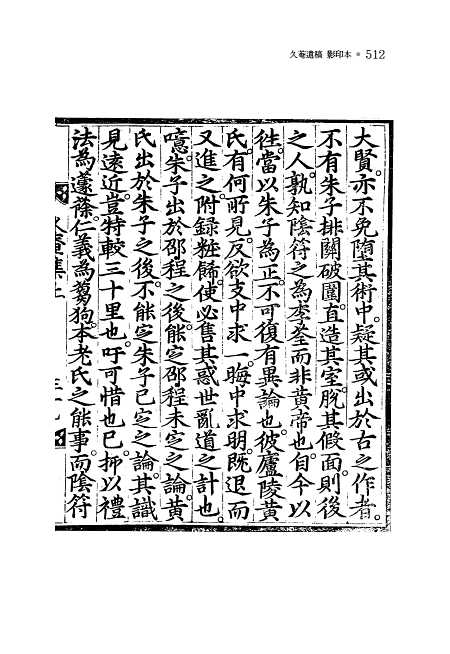 久菴遺稿 影印本 ● 512
大賢。亦不免墮其術中。疑其或出於古之作者。
不有朱子排關破圍。直造其室。脫其假面。則後
之人。孰知陰符之為李筌而非黃帝也。自今以
往。當以朱子為正。不可復有異論也。彼廬陵黃
氏有何所見。反欲支中求一。晦中求明。旣退而
又進之。附錄粧餙。使必售其惑世亂道之計也。
噫。朱子出於邵程之後。能定邵程未定之論。黃
氏出於朱子之後。不能定朱子已定之論。其識
見遠近。豈特較三十里也。吁可惜也已。抑以禮
法為蘧蒢。仁義為蒭狗。本老氏之能事。而陰符
久菴集上 三十九